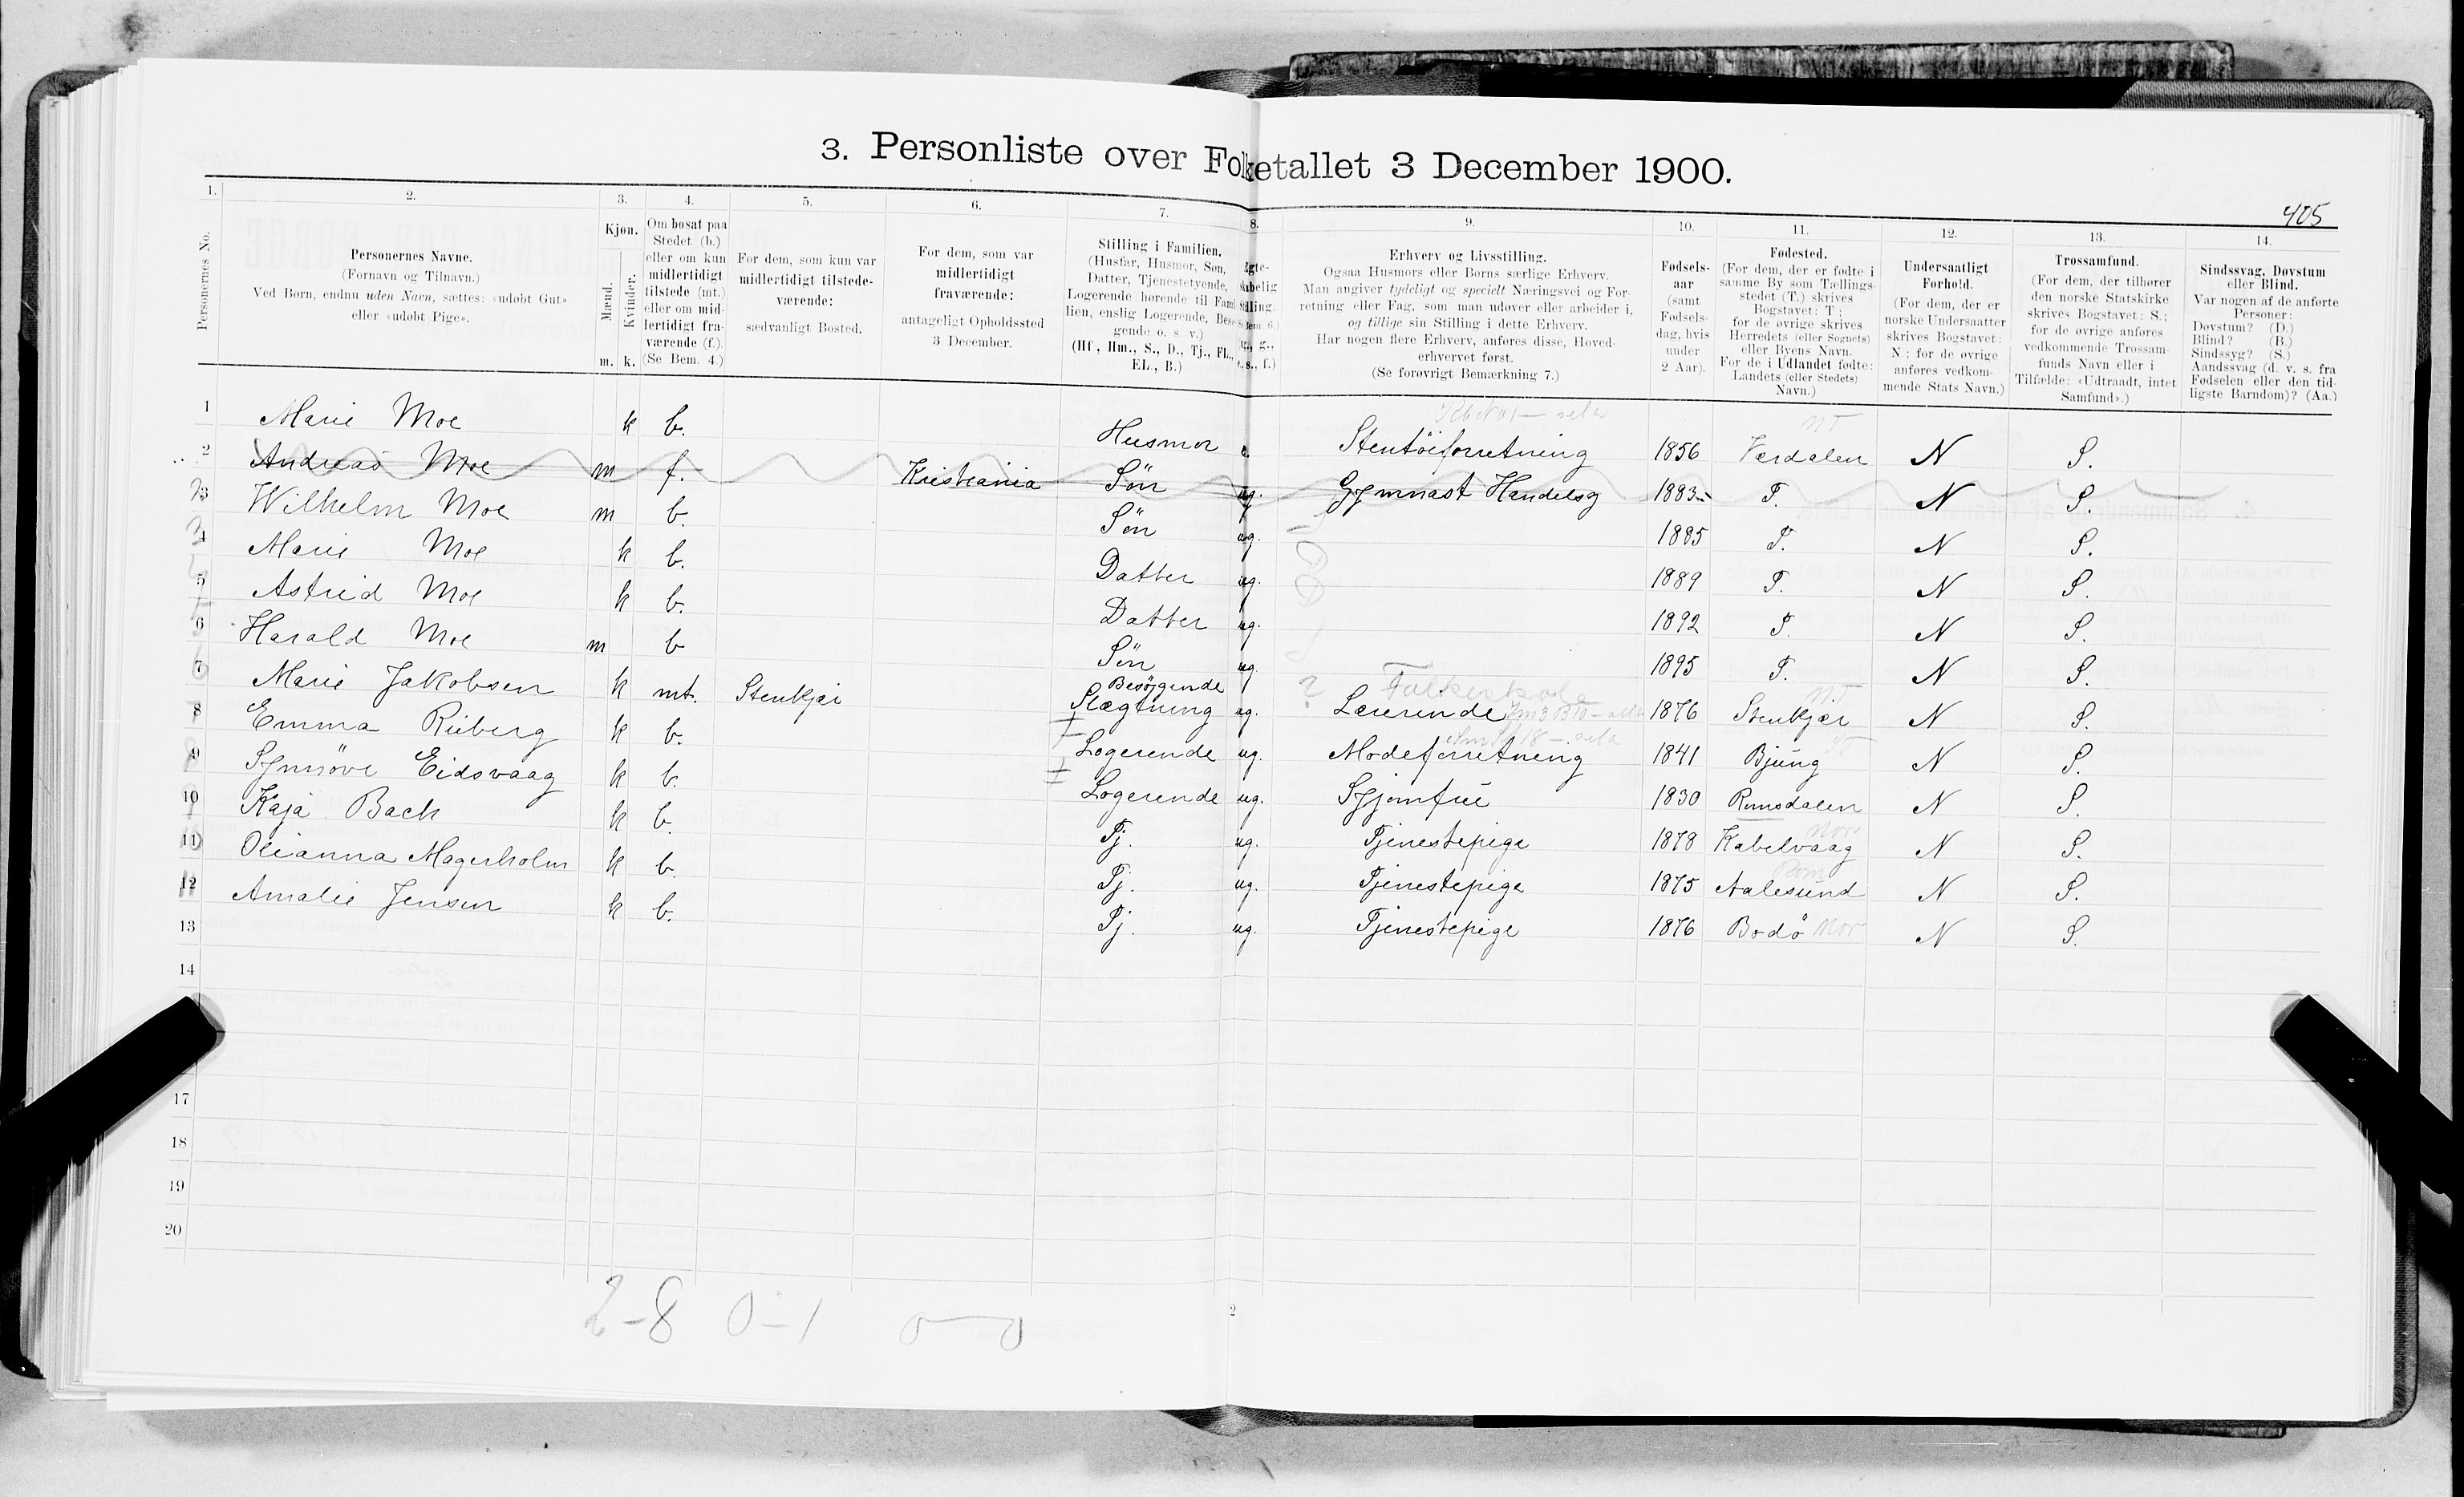 3. Personliste over Folketallet 3 December 1900.
405
1. 2. 3. 4. 5. 6. 7. 8. 9. 10. 11. 12. 13. 14.
Personernes No.
Personernes Navne.
(Fornavn og Tilnavn.)
Ved Børn, endnu uden Navn, sættes: «udøbt Gut»
eller «udøbt Pige».
Kjøn.
Mænd.
Kvinder.
m. k.
Om bosat paa
Stedet (b.)
eller om kun
midlertidigt
tilstede (mt.)
eller om mid-
lertidigt fra-
værende (f.)
(Se Bem. 4.)
For dem, som kun var
midlertidigt tilstede-
værende:
sædvanligt Bosted.
For dem, som var
midlertidigt
fraværende:
antageligt Opholdssted
3 December.
Stilling i Familien.
(Husfar, Husmor, Søn,
Datter, Tjenestetyende,
Logerende hørende til Fami-
lien, enslig Logerende, Besø-
gende o. s. v.)
(Hf., Hm., S., D., Tj., FL.,
EL., B.)
Erhverv og Livsstilling.
Ogsaa Husmors eller Børns særlige Erhverv.
Man angiver tydeligt og specielt Næringsvei og For-
retning eller Fag, som man udøver eller arbeider i,
og tillige sin Stilling i dette Erhverv.
Har nogen flere Erhverv, anføres disse, Hoved-
erhvervet først.
(Se forøvrigt Bemærkning 7.)
Fødsels-
aar
(samt
Fødsels-
dag, hvis
under
2 Aar).
Fødested.
(For dem, der er fødte i
samme By som Tællings-
stedet (T.) skrives
Bogstavet: T;
for de øvrige skrives
Herredets (eller Sognets)
eller Byens Navn.
For de i Udlandet fødte:
Landets (eller Stedets)
Navn.)
Undersaatligt
Forhold.
(For dem, der er
norske Undersaatter
skrives Bogstavet:
N; for de øvrige
anføres vedkom-
mende Stats Navn.)
Trossamfund.
(For dem, der tilhører
den norske Statskirke
skrives Bogstavet: S.;
for de øvrige anføres
vedkommende Trossam-
funds Navn eller i
Tilfælde: «Udtraadt, intet
Samfund».)
Sindssvag, Døvstum
eller Blind.
Var nogen af de anførte
Personer:
Døvstum? (D.)
Blind? (B.)
Sindssyg? (S.)
Aandssvag (d. v. s. fra
Fødselen eller den tid-
ligste Barndom)? (Aa.)
1 Marie Moe k b. Husmor e. Stentöiforretning 1856 Værdalen N S.
2 Andreas Moe m f. Kristiania Sön ug. Gymnast Handelsg 1883 T. N S.
3 Wilhelm Moe m b. Sön ug. 1885 T. N S.
4 Marie Moe k b. Datter ug. 1889 T. N S.
5 Astrid Moe k b. Datter ug. 1892 T. N S.
6 Harald Moe m b Sön ug. 1895 T. N S.
7 Marie Jakobsen k mt. Stenkjær Besøgende Slægtning ug. Lærerinde 1876 Stenkjær N S.
8 Emma Riiberg k b. Logerende ug. Modeforretning 1841 Bjung N S.
9 Synnöve Eidsvaag k b. Logerende ug. Syjomfru 1830 Romsdalen N S.
10 Kaja Bach k b. Tj. ug. Tjenestepige 1878 Kabelvaag N S.
11 Olianna Magerholm k b. Tj. ug. Tjenestepige 1875 Aalesund N S.
12 Amalie Jensen k b. Tj. ug. Tjenestepige 1876 Bodö N S.
13
14
17
18
19
20
2-8 0-1 0-0
2